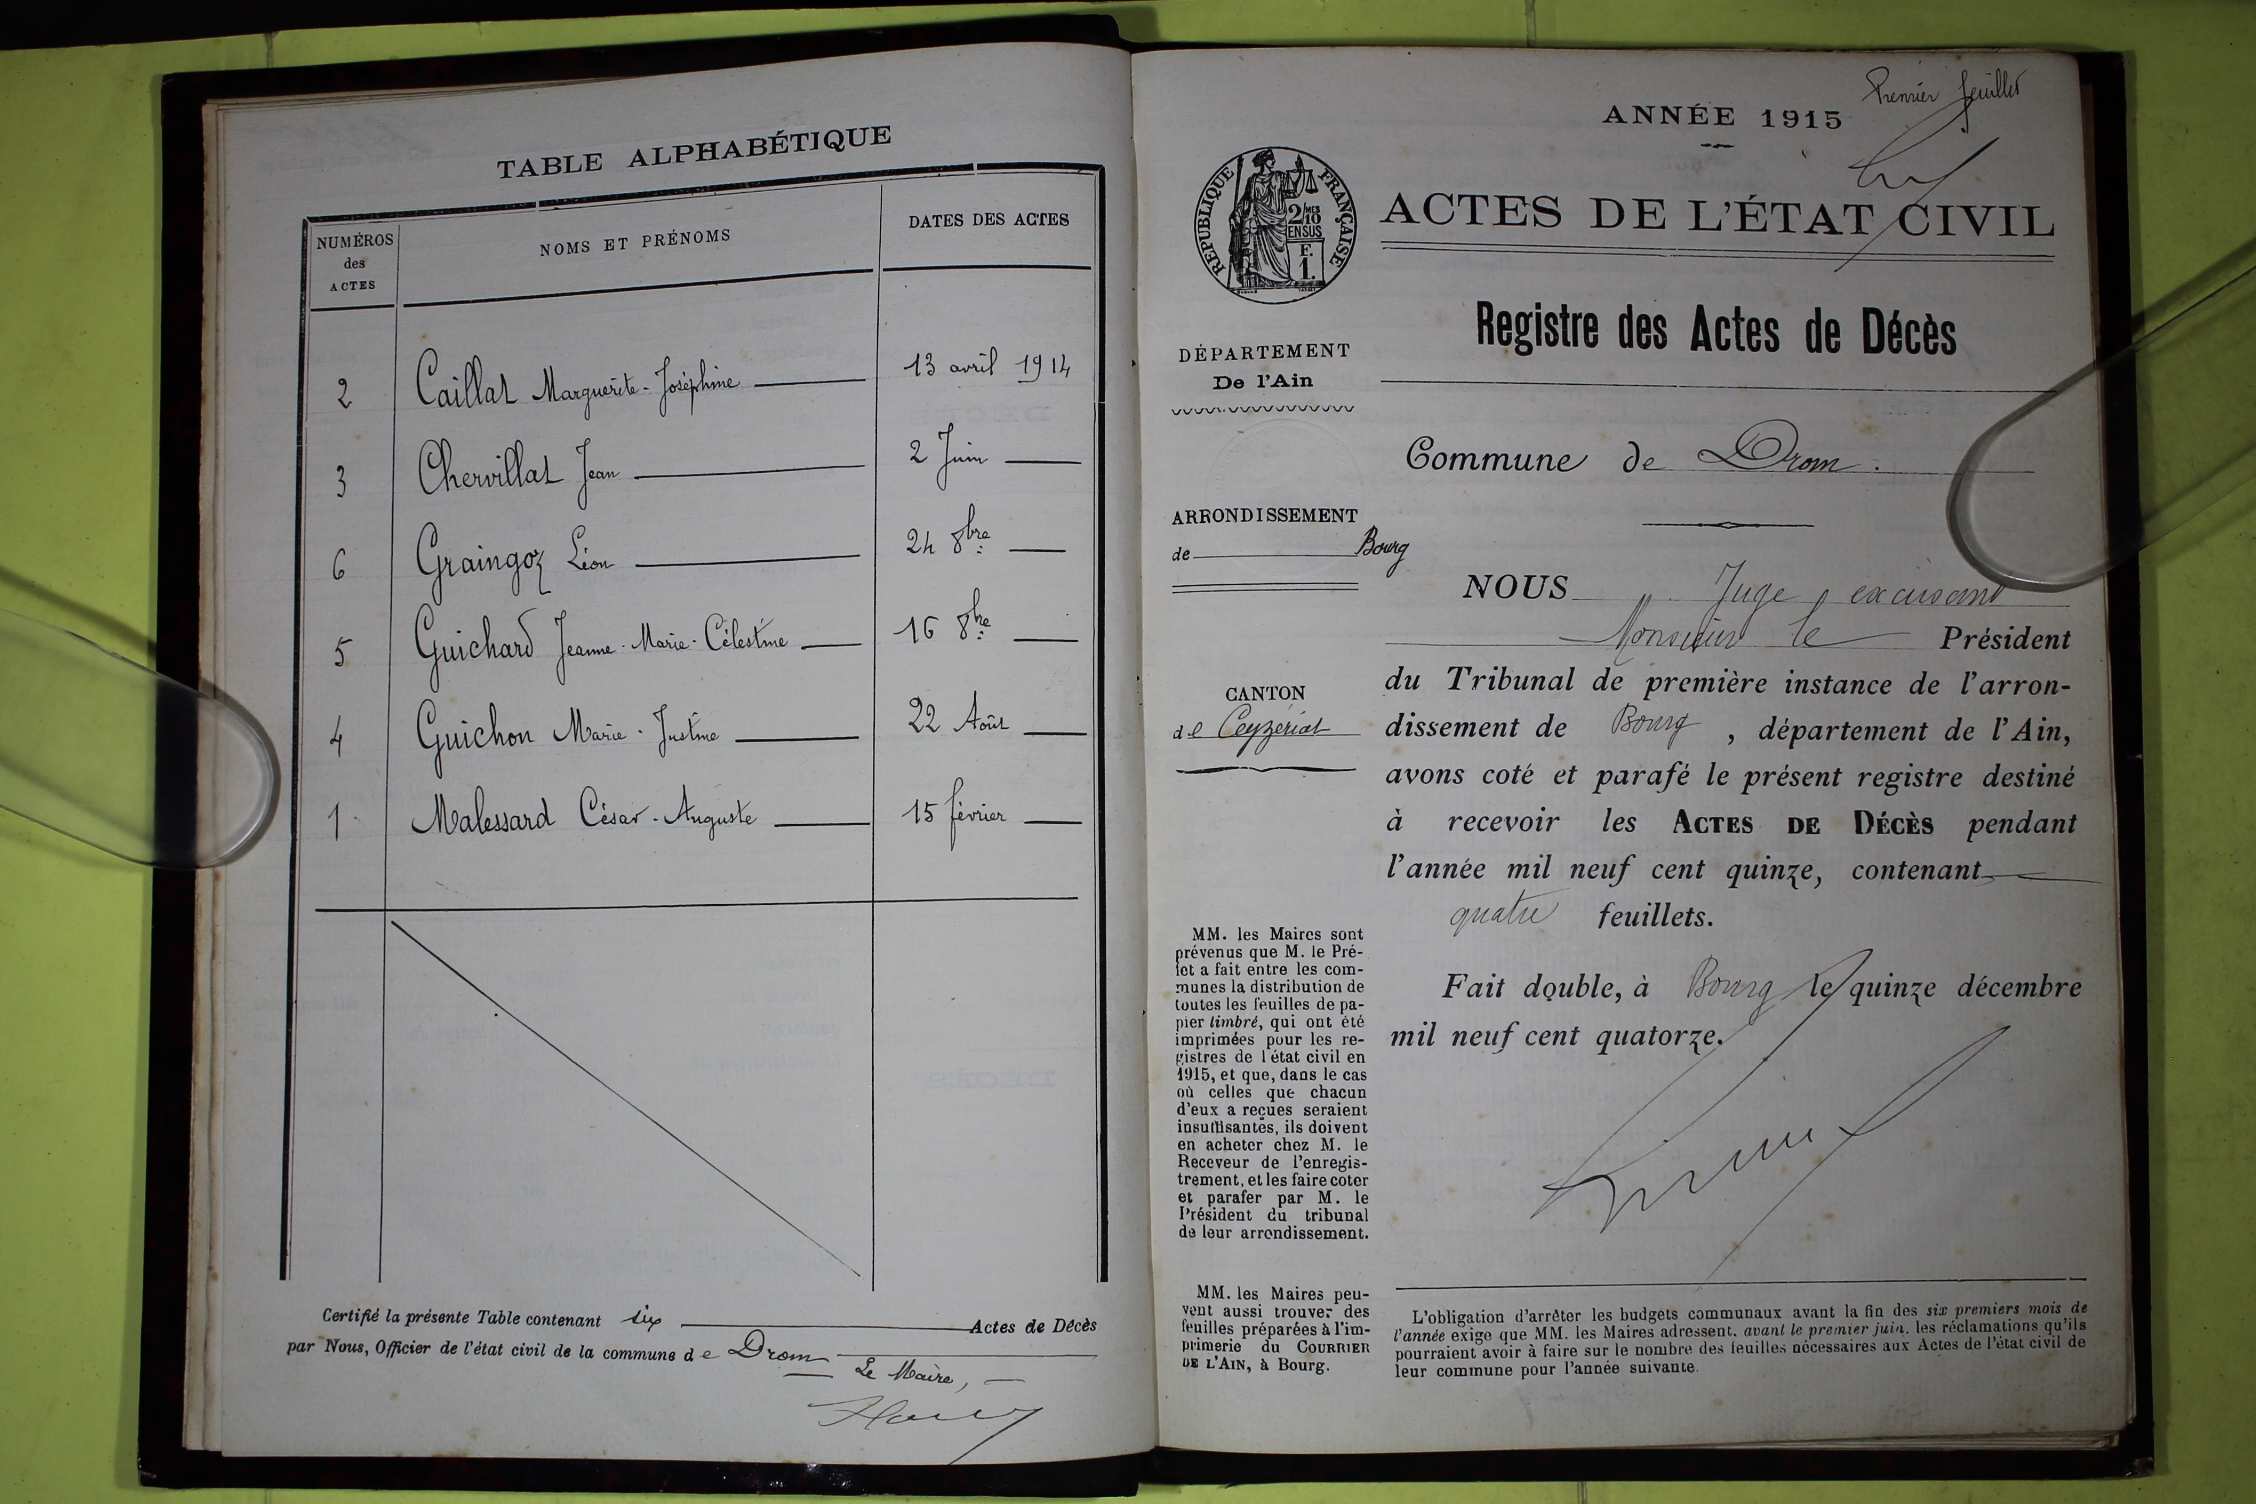 TABLE ALPHABÉTIQUE
NUMÉROS
des
ACTES
NOMS ET PRÉNOMS
DATES DES ACTES
2 Caillat Marguerite-Joséphine 13 avril 1914
3 Chervillat Jean 2 Juin
6 Graingoz Léon 24 8bre
5 Guichard Jeanne-Marie-Célestine 16 8bre
4 Guichon Marie-Justine 22 Août
1 Malessard César-Auguste 15 février
Certifié la présente Table contenant six Actes de Décès
par Nous, Officier de l'état civil de la commune de Drom
Le Maire,
Premier feuillet
ANNÉE 1915
RÉPUBLIQUE FRANÇAISE
2/10 MES
EN SUS
F.
1.
ACTES DE L'ÉTAT CIVIL
Registre des Actes de Décès
DÉPARTEMENT
De l'Ain
Commune de Drom.
ARRONDISSEMENT
de Bourg
CANTON
de Ceyzériat
NOUS Juge excusant
Monsieur le Président
du Tribunal de première instance de l'arron-
dissement de Bourg, département de l'Ain,
avons coté et parafé le présent registre destiné
à recevoir les ACTES DE DÉCÈS pendant
l'année mil neuf cent quinze, contenant
quatre feuillets.
Fait double, à Bourg le quinze décembre
mil neuf cent quatorze.
MM. les Maires sont
prévenus que M. le Pré-
fet a fait entre les com-
munes la distribution de
toutes les feuilles de pa-
pier timbré, qui ont été
imprimées pour les re-
gistres de l'état civil en
1915, et que, dans le cas
où celles que chacun
d'eux a reçues seraient
insuffisantes, ils doivent
en acheter chez M. le
Receveur de l'enregis-
trement, et les faire coter
et parafer par M. le
Président du tribunal
de leur arrondissement.
MM. les Maires peu-
vent aussi trouver des
feuilles préparées à l'im-
primerie du COURRIER
DE L'AIN, à Bourg.
L'obligation d'arrêter les budgets communaux avant la fin des six premiers mois de
l'année exige que MM. les Maires adressent, avant le premier juin, les réclamations qu'ils
pourraient avoir à faire sur le nombre des feuilles nécessaires aux Actes de l'état civil de
leur commune pour l'année suivante.